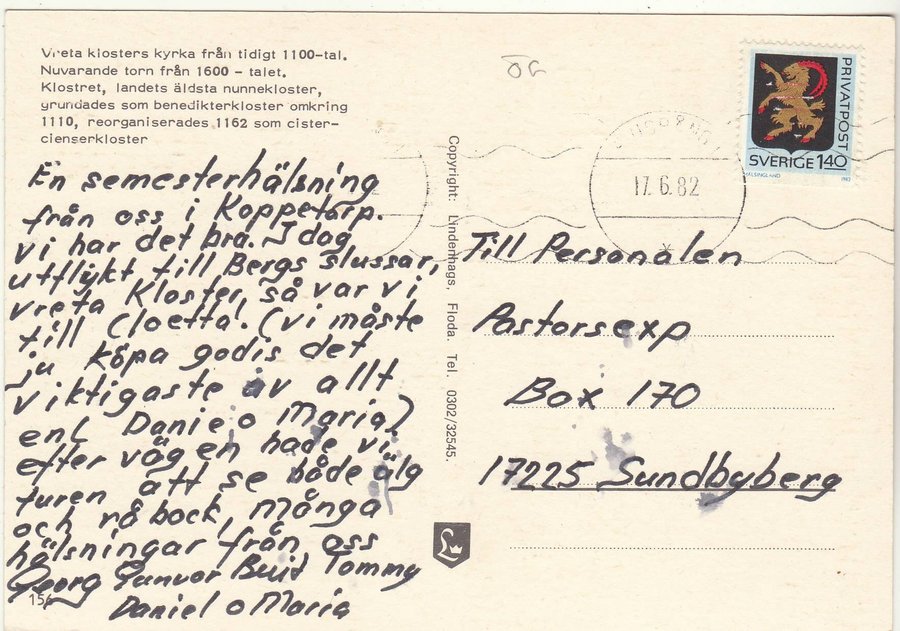 Vreta klosters kyrka från tidigt 1100-tal.
Nuvarande torn från 1600 - talet.
Klostret, landets äldsta nunnekloster,
grundades som benedikterkloster omkring
1110, reorganiserades 1162 som cister-
cienserkloster
En semesterhälsning
från oss i Koppetorp.
Vi har det bra. I dag
utflykt till Bergs slussar,
Vreta Kloster, så var vi
till Cloetta! (vi måste
ju köpa godis det
viktigaste av allt
enl Daniel o Maria)
efter vägen hade vi
turen att se både älg
och råbock, många
hälsningar från oss
Georg Gunvor Tommy
Daniel o Maria
15
Copyright: Lindenhags, Floda. Tel. 0302/32545.
L
ÖG
17.6.82
PRIVATPOST
SVERIGE 140
HÄLSINGLAND
1982
Till Personalen
Pastorsexp
Box 170
17225 Sundbyberg